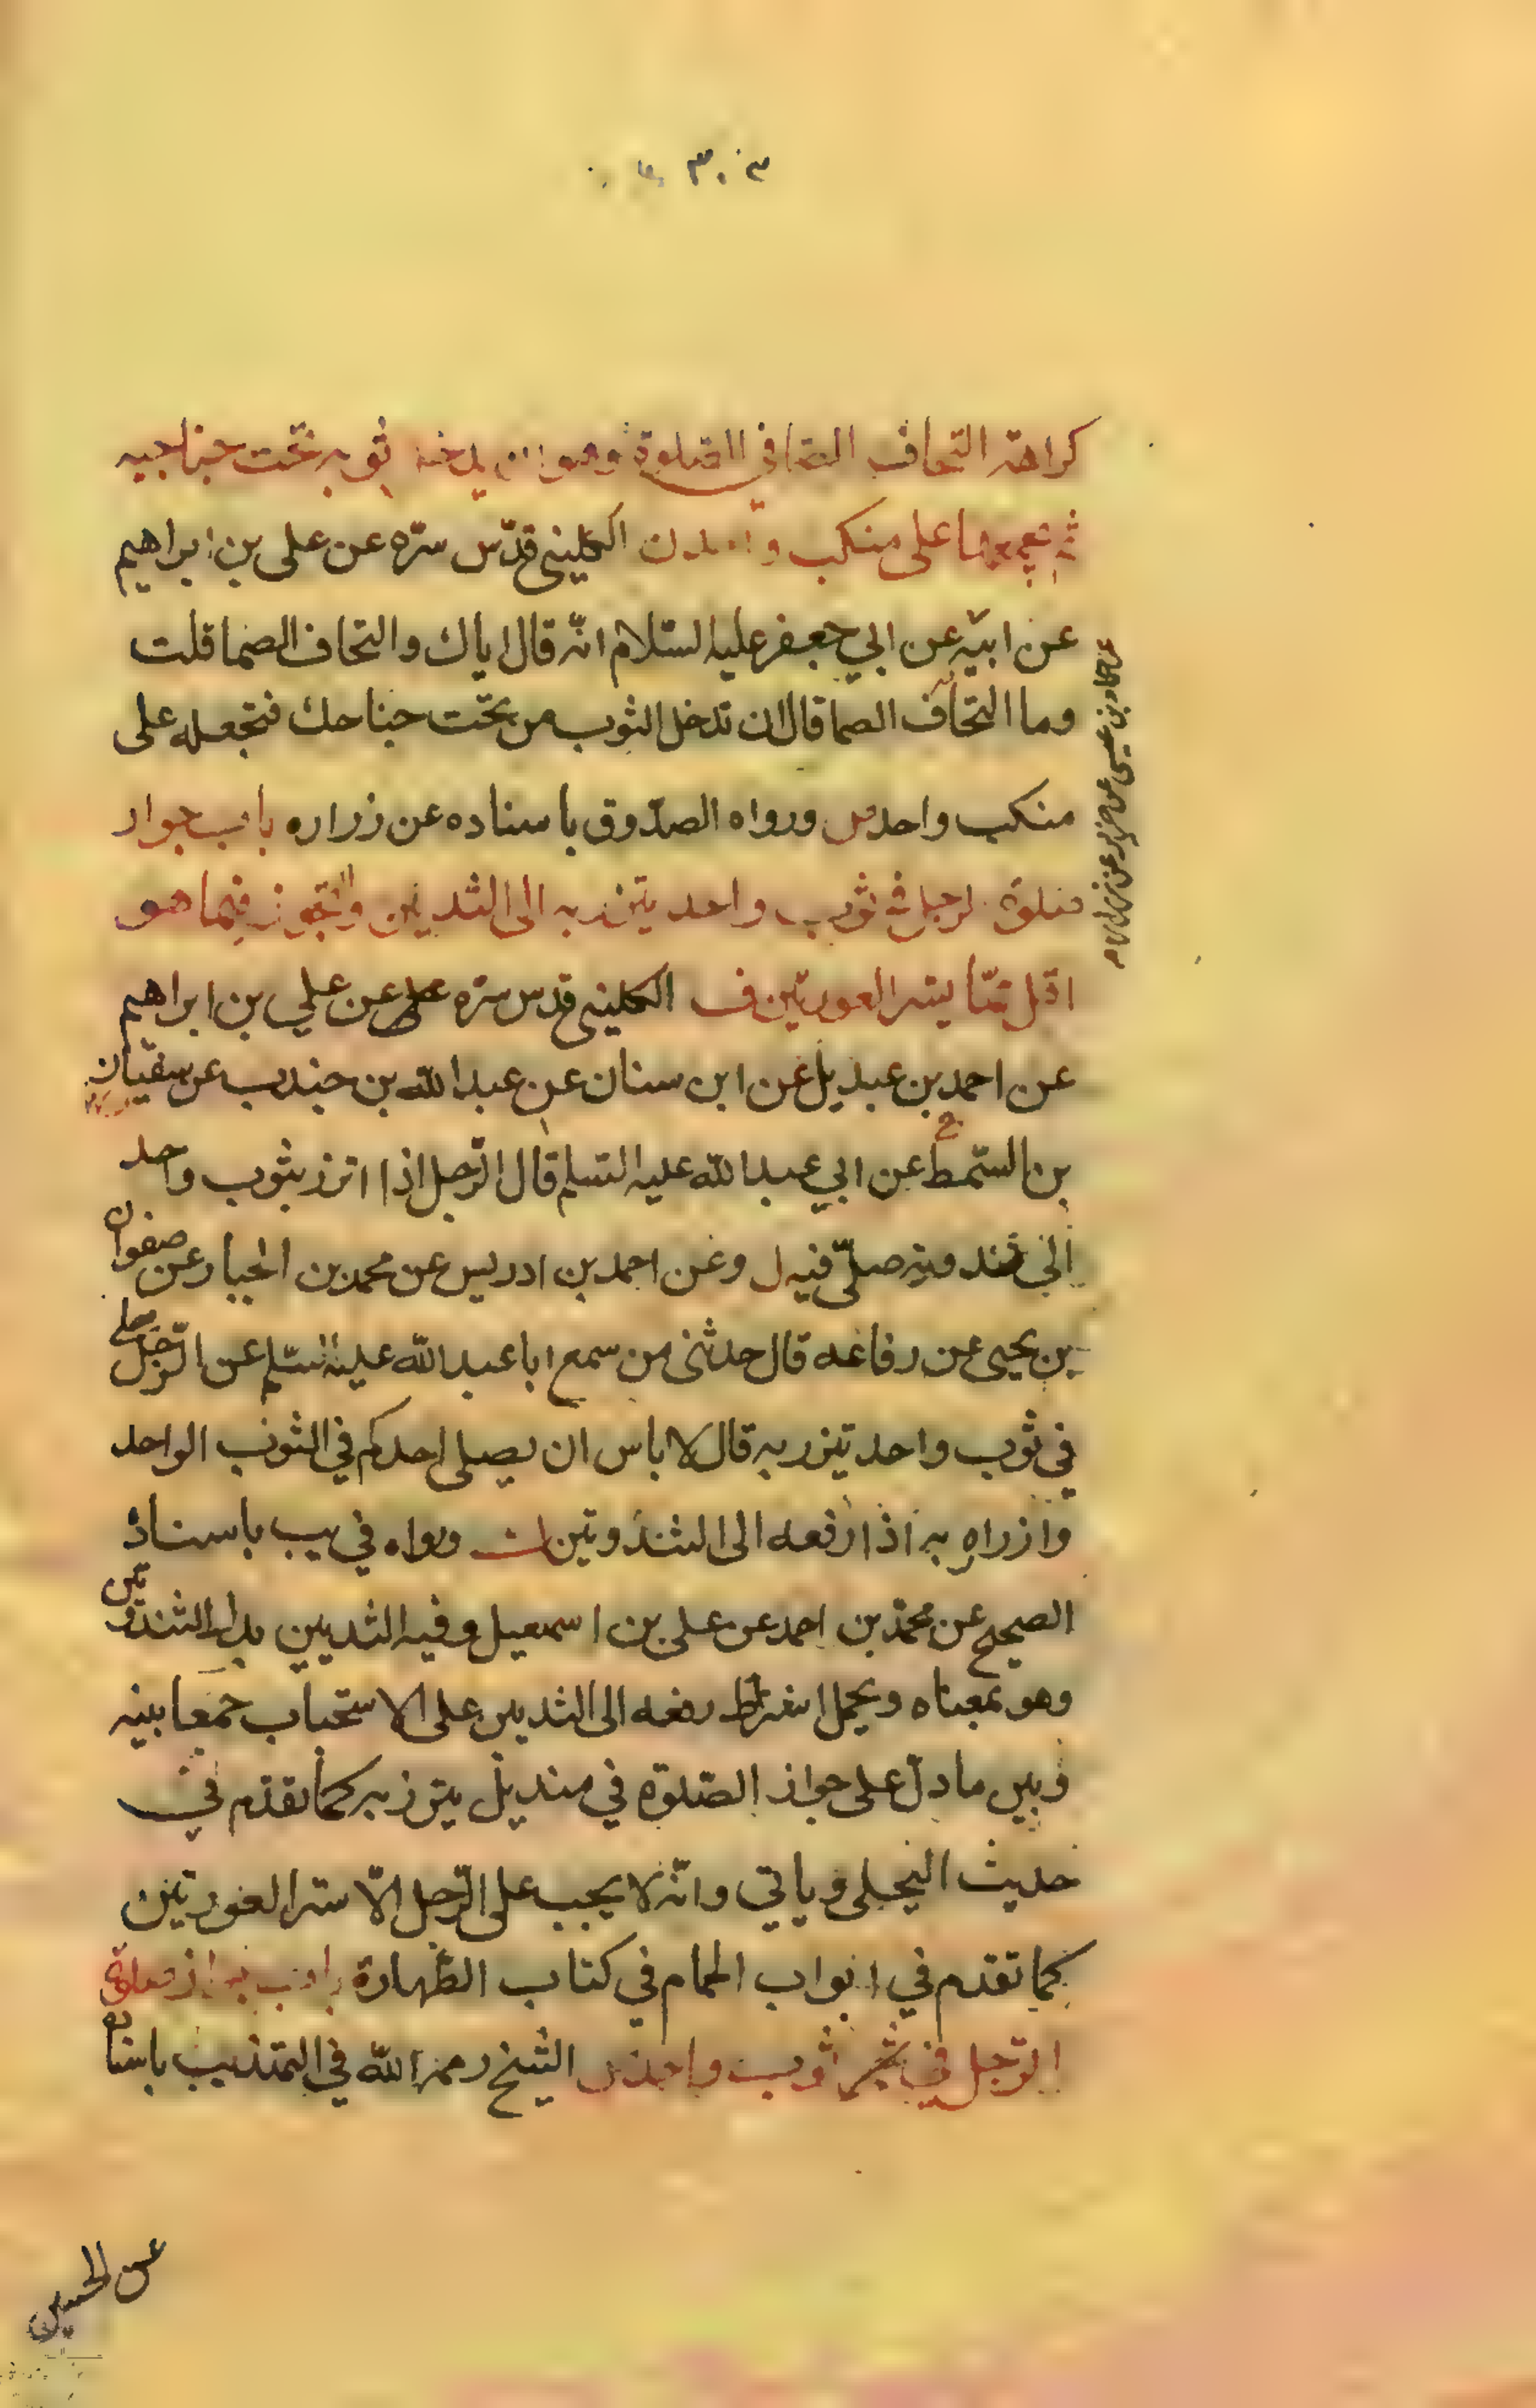 كراهة التحاف الصما في الصلوة وهو ان يدخل ثوبه تحت جناحيه
ثم يجمعهما على منكب واحد ن الكليني قدّس سرّه عن على بن ابراهيم
عن ابيه عن ابي جعفر عليه السّلام انّه قال اياك والتحاف الصما قلت
وما التحاف الصما قال ان تدخل الثوب من تحت جناحك فتجعله على
منكب واحد ورواه الصدّوق باسناده عن زراره باب جواز
صلوة الرجل في ثوب واحد يتزر به الى الثديين وتجوز فيما هو
اقل ممّا يستر العورتين ف الكليني قدس سره عن علي بن ابراهيم
عن احمد بن عبديل عن ابن سنان عن عبد الله بن جندب عن سفيان
بن السّمط عن ابي عبد الله عليه السّلم قال الرّجل اذا اتزر بثوب واحد
الى ثندوتيه صلّى فيه ل وعن احمد بن ادريس عن محمد بن الجبار عن صفوان
بن يحيى عن رفاعه قال حدثنى من سمع ابا عبد الله عليه السّلم عن الرّجل يصلى
في ثوب واحد تيزر به قال لا باس ان يصلى احدكم في الثوب الواحد
وازراه به اذا رفعه الى الثندوتين ورواه في يب باسناد
الصحيح عن محمّد بن احمد عن على بن اسمعيل وفيه الثديين بدل الثندوتين
وهو بمعناه ويحمل اشتراط رفعه الى الثديين على الاستحباب جمعا بينه
وبين ما دلّ على جواز الصّلوة في منديل يتزر به كما تقدّم في
حديث الحلبى وياتي وانّه لا يجب على الرّجل الّا ستر العورتين
كما تقدم في ابواب الحمام في كتاب الطّهارة باب جواز صلوة
الرّجل في ثوب واحد الشيخ رحمه الله في التهذيب باسناده
عن الحسين
عن حماد بن عيسى عن حريز عن زراره